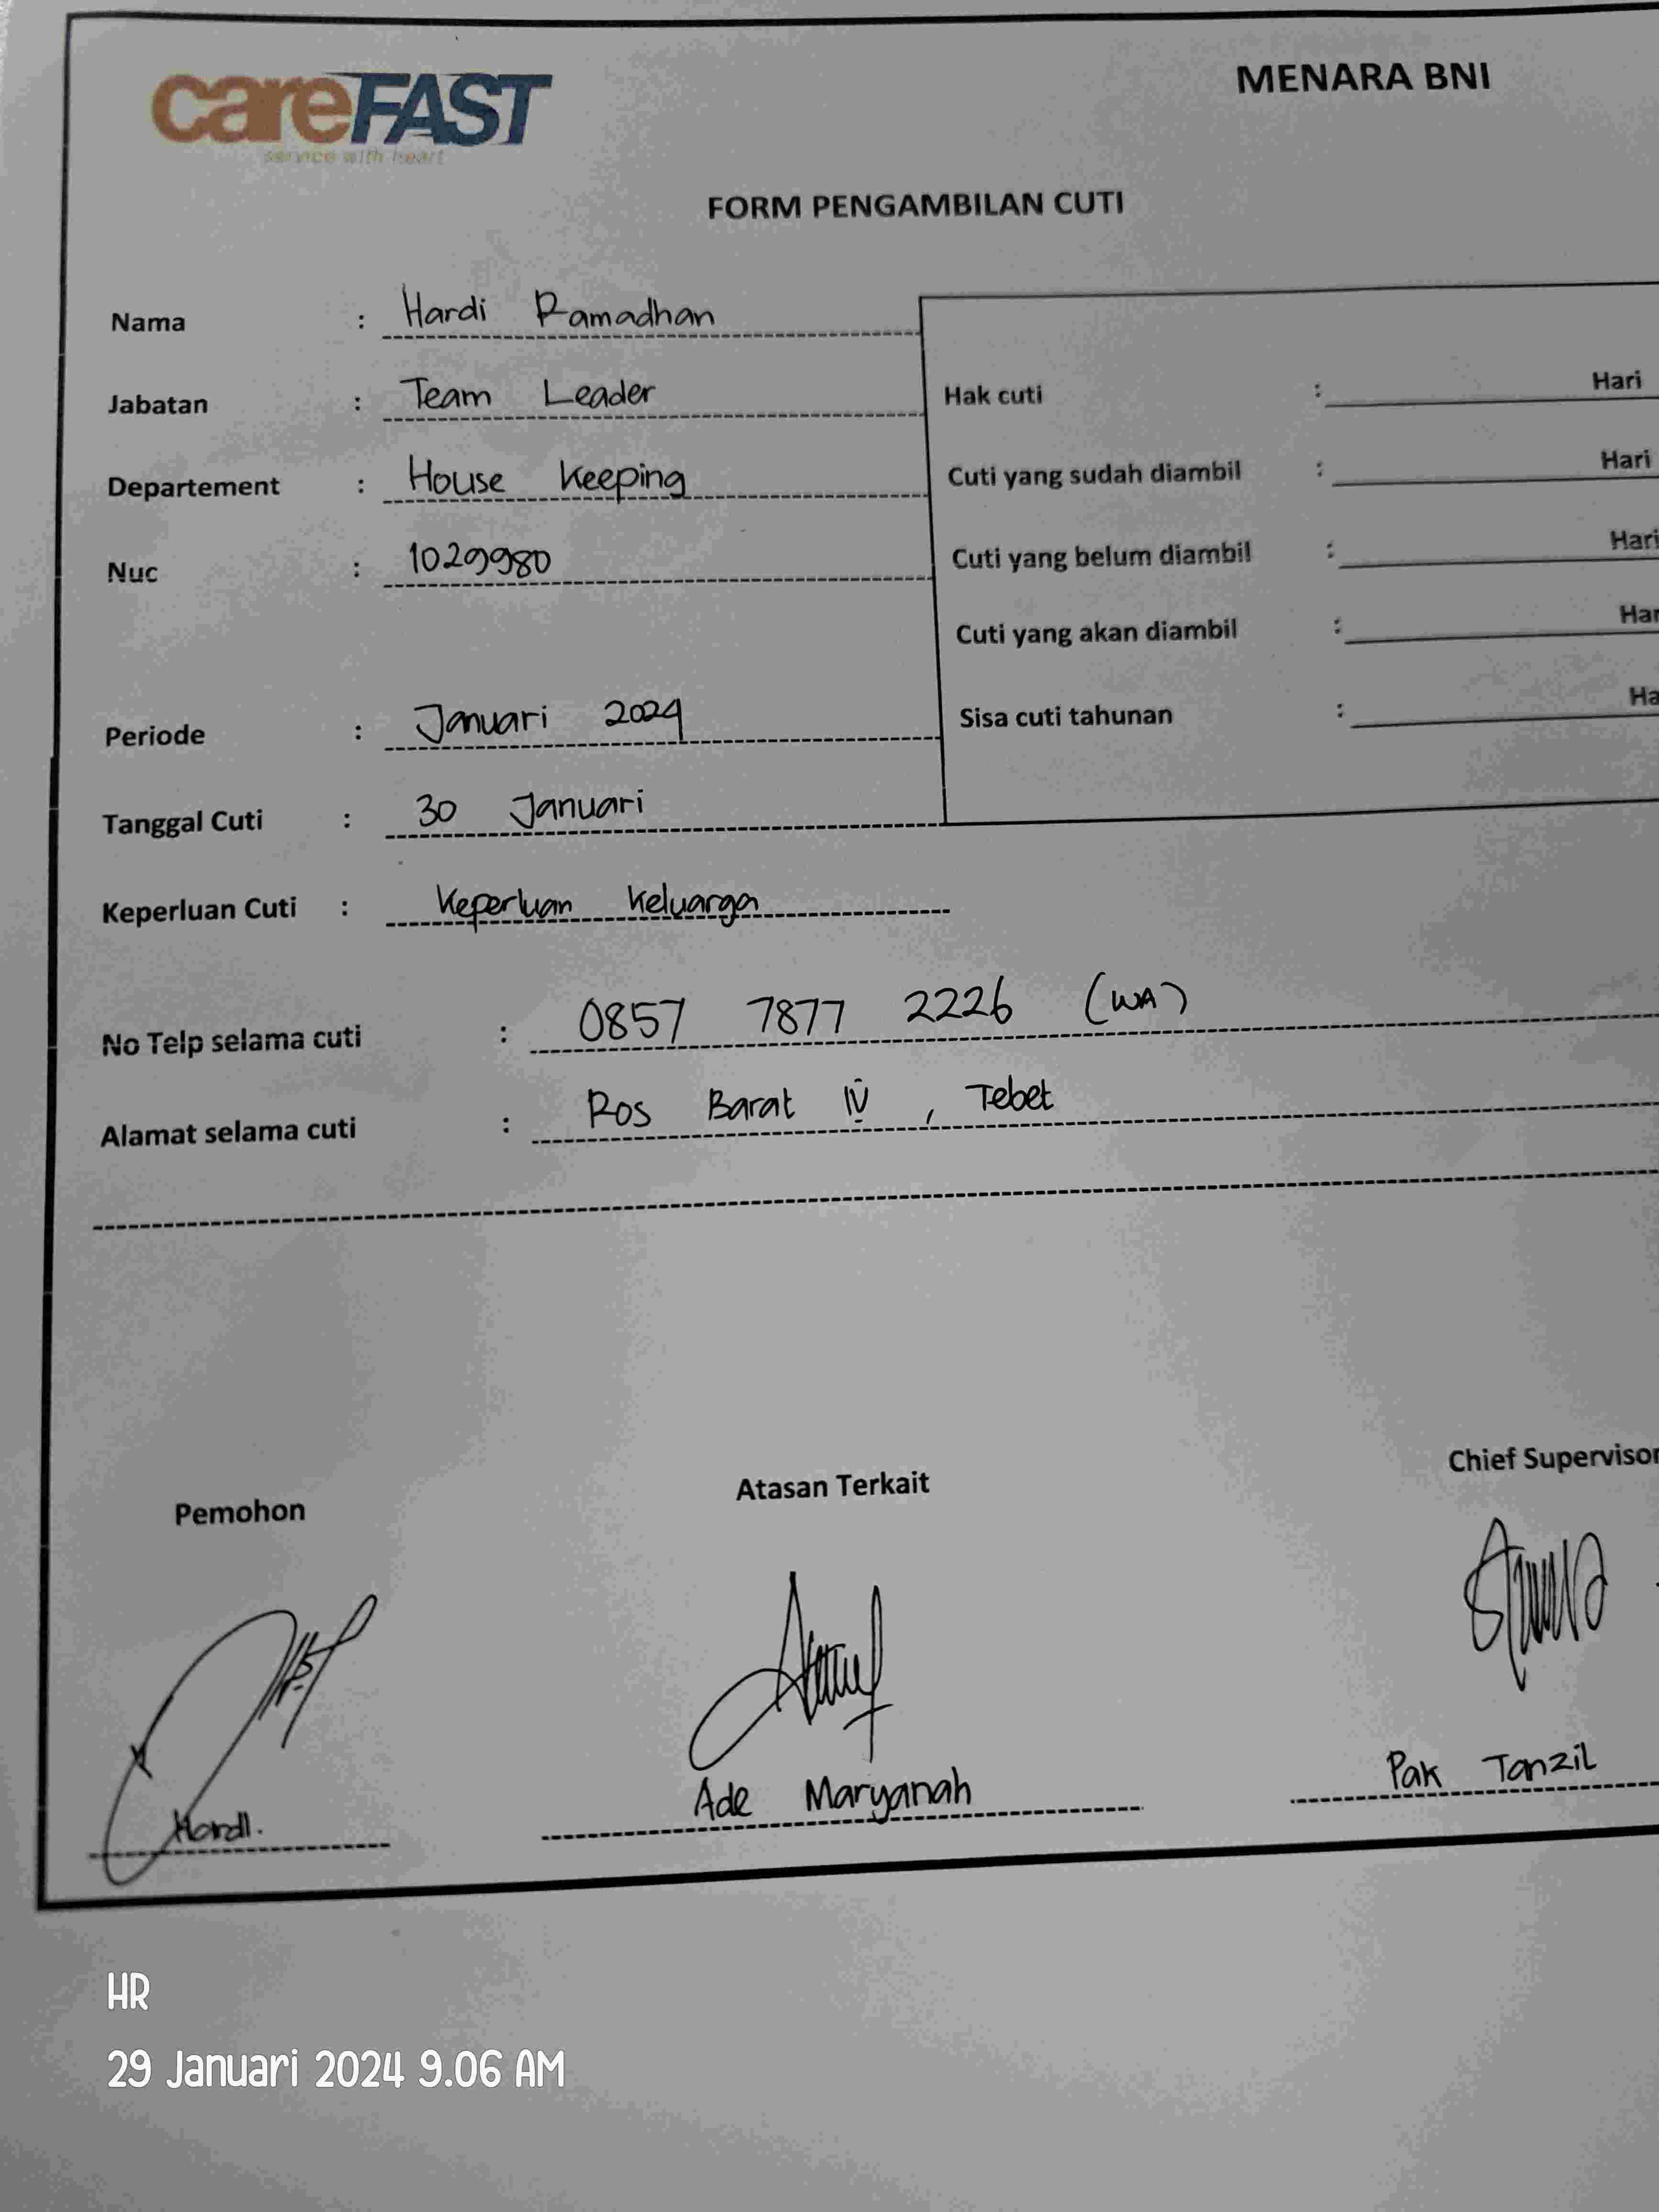 careFAST
service with heart
MENARA BNI
FORM PENGAMBILAN CUTI
Nama : Hardi Ramadhan
Jabatan : Team Leader
Departement : House Keeping
Nuc : 1029980
Periode : Januari 2024
Tanggal Cuti : 30 Januari
Keperluan Cuti : Keperluan Keluarga
Hak cuti : Hari
Cuti yang sudah diambil : Hari
Cuti yang belum diambil : Hari
Cuti yang akan diambil : Har
Sisa cuti tahunan : Ha
No Telp selama cuti : 0857 7877 2226 (WA)
Alamat selama cuti : Ros Barat IV , Tebet
Pemohon
Atasan Terkait
Chief Supervisor
Hardi.
Ade Maryanah
Pak Tanzil
HR
29 Januari 2024 9.06 AM